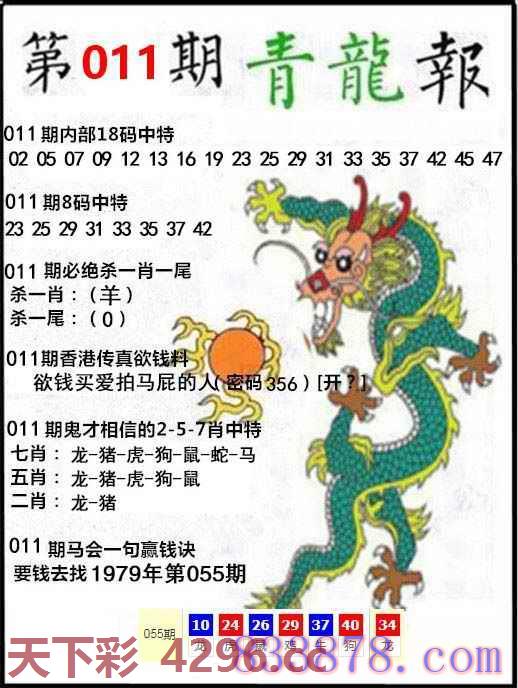 第011期青龍報
011期内部18码中特
02 05 07 09 12 13 16 19 23 25 29 31 33 35 37 42 45 47
011期8码中特
23 25 29 31 33 35 37 42
011期必绝杀一肖一尾
杀一肖：（羊）
杀一尾：（0）
011期香港传真欲钱料
欲钱买爱拍马屁的人（密码356）[开？]
011期鬼才相信的2-5-7肖中特
七肖：龙-猪-虎-狗-鼠-蛇-马
五肖：龙-猪-虎-狗-鼠
二肖：龙-猪
011期马会一句赢钱诀
要钱去找1979年第055期
055期 10 24 26 29 37 40 34
龙 虎 鼠 鸡 牛 狗 龙
天下彩 4296.cc
838878.com